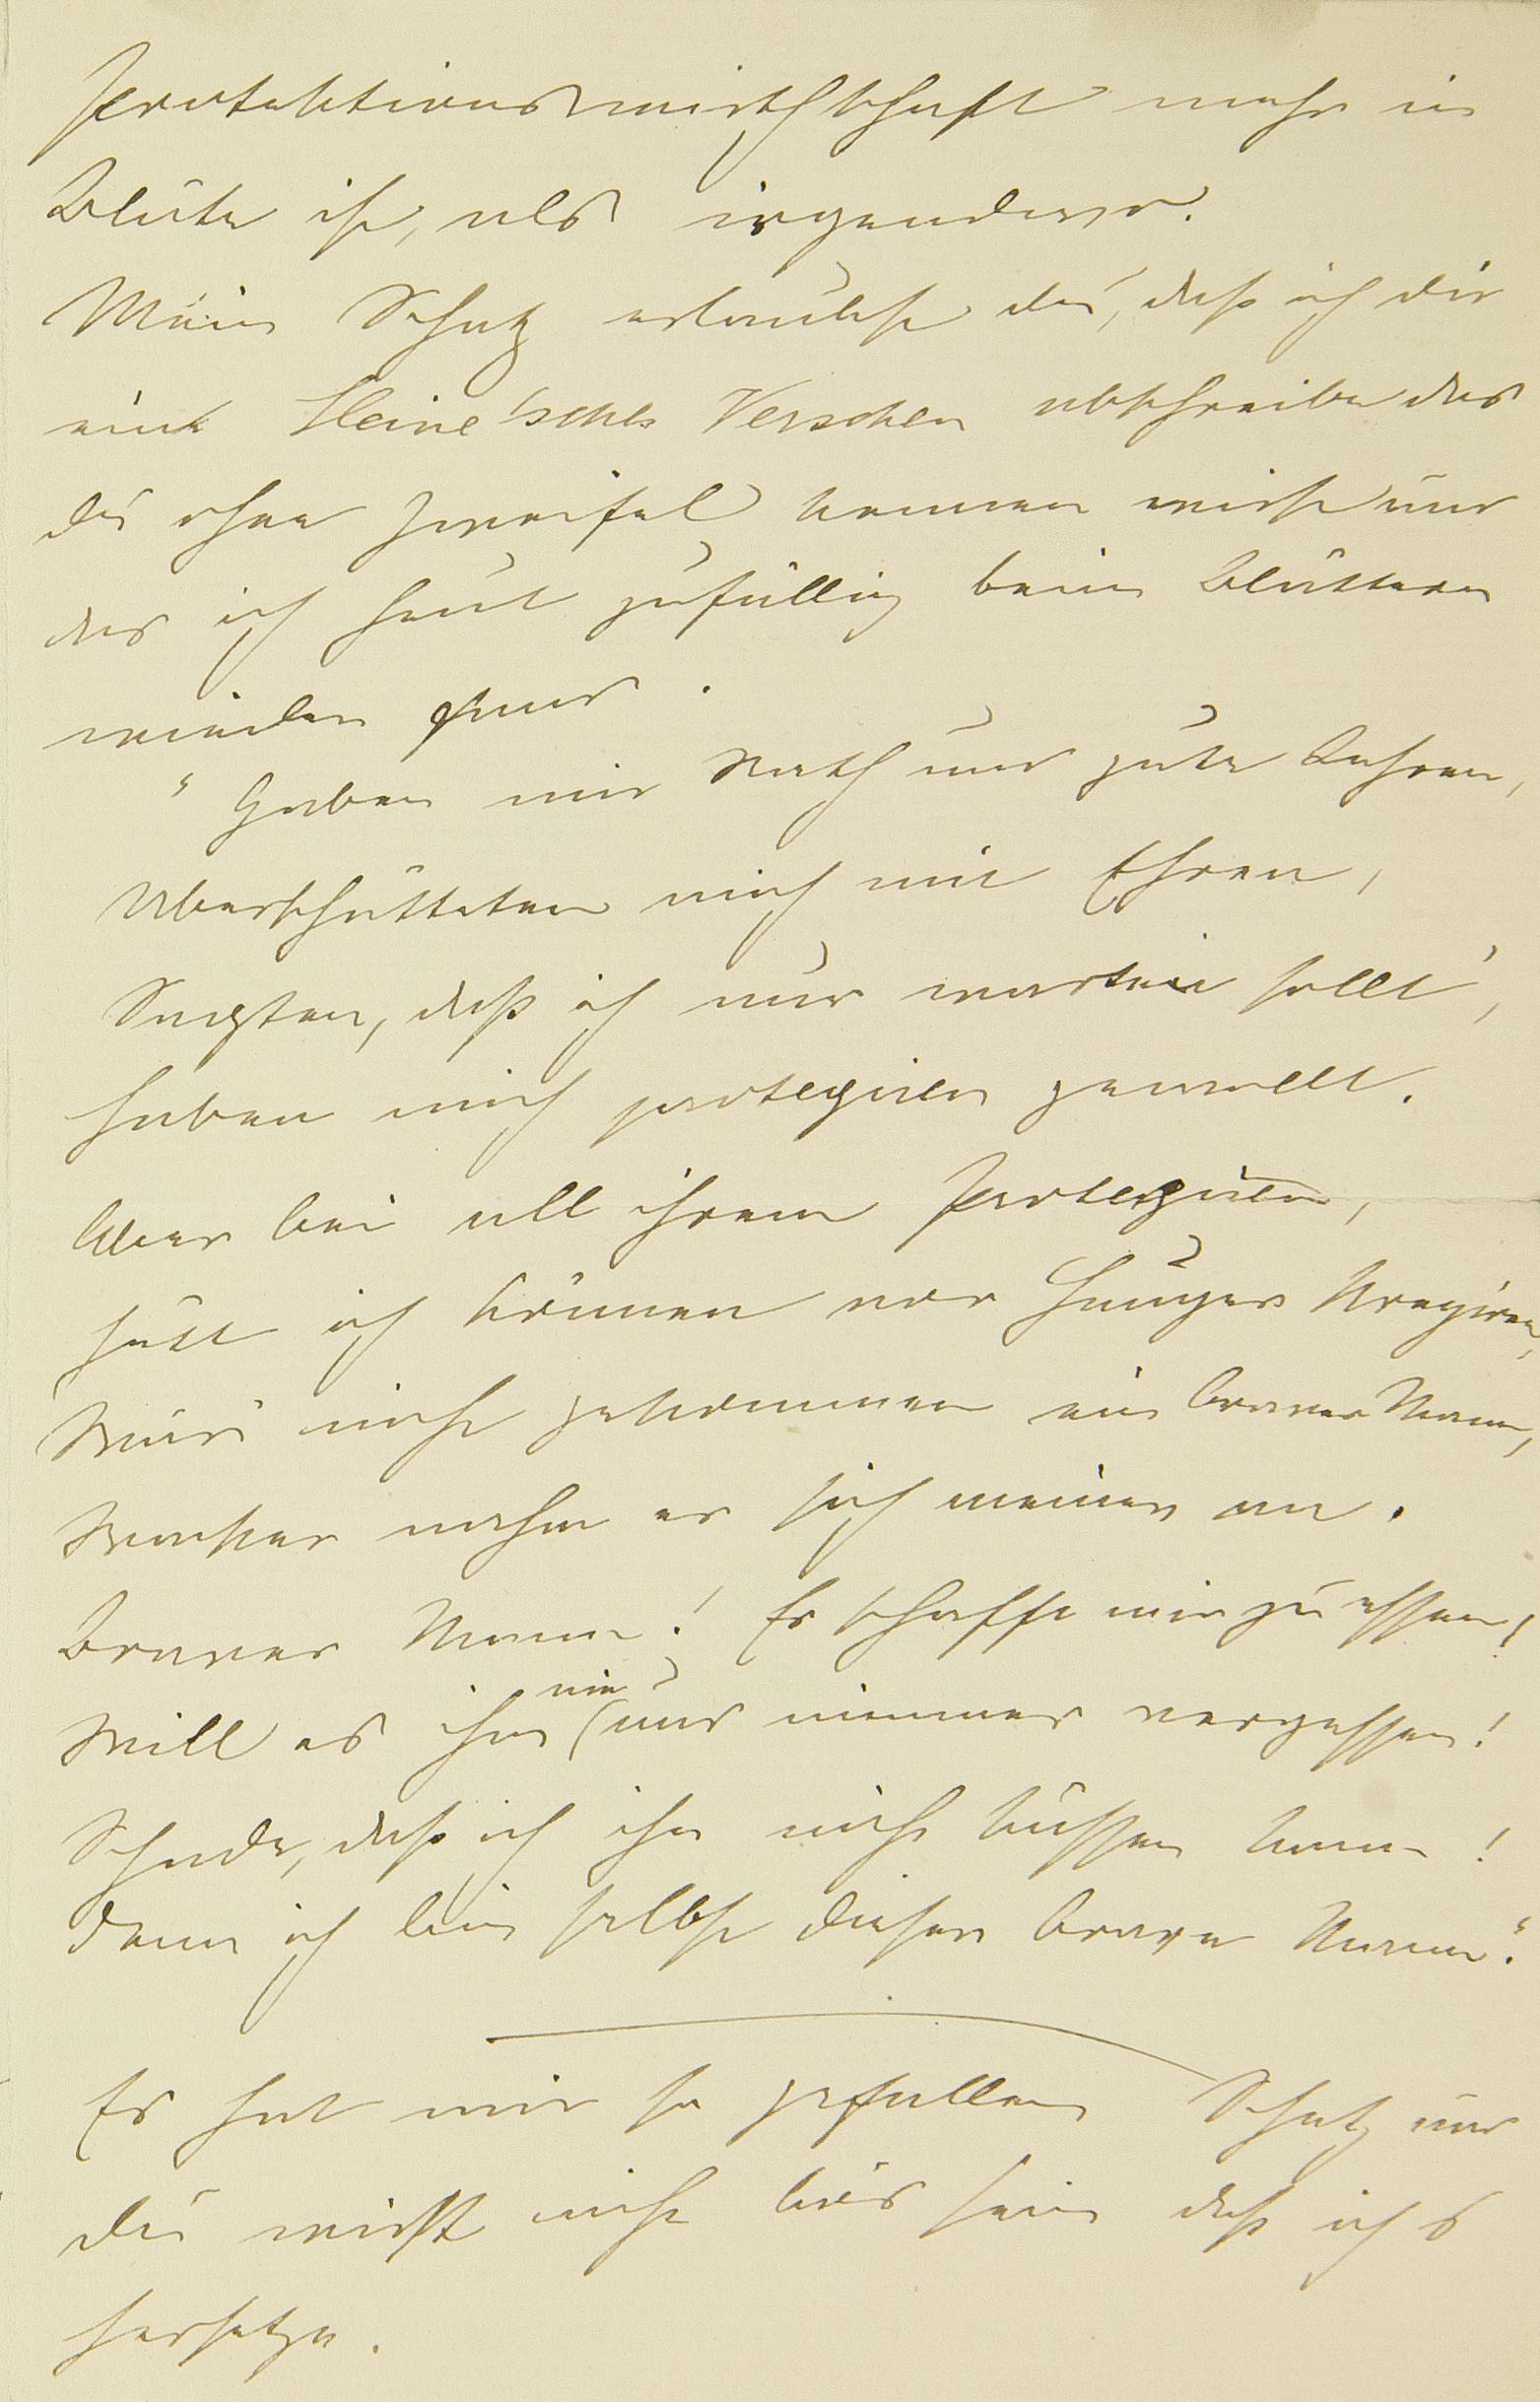 Protektionswirthschaft mehr in
Blüte ist, als irgendwo.
Mein Schatz erlaubst du, daß ich dir
ein Heine'sches Verschen abschreibe das
du ohne Zweifel kennen wirst und
das ich heut zufällig beim Blättern
wieder fand.
"Gaben mir Rath und gute Lehren,
Überschütteten mich mit Ehren,
Sagten, daß ich nur warten sollt',
Haben mich protegiren gewollt.
Aber bei all ihrem Protegiren,
Hätt ich können vor Hunger krepiren,
Wär' nicht gekommen ein braver Mann,
Wacker nahm er sich meiner an.
Braver Mann! Er schafft mir zu essen!
Will es ihm nie und nimmer vergessen!
Schade, daß ich ihn nicht küssen kann!
Denn ich bin selbst dieser brave Mann."
Es hat mir so gefallen Schatz und
du wirst nicht bös sein daß ichs
hersetze.